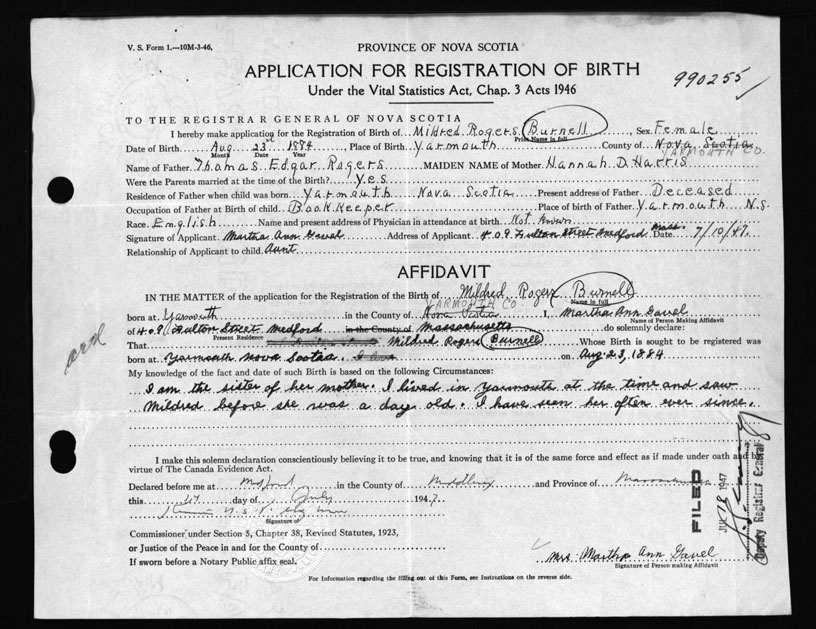 V. S. Form 1.—10M-3-46,
PROVINCE OF NOVA SCOTIA
APPLICATION FOR REGISTRATION OF BIRTH
990255
Under the Vital Statistics Act, Chap. 3 Acts 1946
TO THE REGISTRAR GENERAL OF NOVA SCOTIA
I hereby make application for the Registration of Birth of Mildred Rogers Burnell, Sex Female
Print Name in full
Date of Birth Aug 23rd 1884, Place of Birth Yarmouth County of Nova Scotia
Month Date Year YARMOUTH CO.
Name of Father Thomas Edgar Rogers MAIDEN NAME of Mother Hannah D. Harris
Were the Parents married at the time of the Birth? Yes
Residence of Father when child was born Yarmouth Nova Scotia Present address of Father Deceased
Occupation of Father at Birth of child Book Keeper Place of birth of Father Yarmouth N.S.
Race English Name and present address of Physician in attendance at birth Not known
Signature of Applicant Martha Ann Gavel Address of Applicant 409 Fulton Street Medford Mass. Date 7/10/47.
Relationship of Applicant to child Aunt
AFFIDAVIT
IN THE MATTER of the application for the Registration of the Birth of Mildred Rogers Burnell
Name in full
YARMOUTH CO
born at Yarmouth in the County of Nova Scotia I, Martha Ann Gavel
Name of Person Making Affidavit
of 409 Fulton Street Medford in the County of Massachusetts do solemnly declare:
Present Residence
That Mildred Rogers Burnell Whose Birth is sought to be registered was
born at Yarmouth Nova Scotia. on Aug. 23, 1884
My knowledge of the fact and date of such Birth is based on the following Circumstances:
I am the sister of her mother. I lived in Yarmouth at the time and saw
Mildred before she was a day old. I have seen her often ever since.
I make this solemn declaration conscientiously believing it to be true, and knowing that it is of the same force and effect as if made under oath and by
virtue of The Canada Evidence Act.
Declared before me at Medford in the County of Middlesex and Province of Massachusetts
this day of July 1947.
Signature of
Commissioner under Section 5, Chapter 38, Revised Statutes, 1923,
or Justice of the Peace in and for the County of
If sworn before a Notary Public affix seal.
Mrs. Martha Ann Gavel
Signature of Person making Affidavit
For Information regarding the filling out of this Form, see Instructions on the reverse side.
FILED
JUL 18 1947
Deputy Registrar General